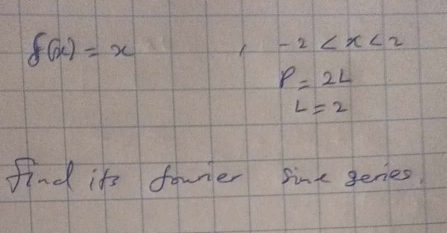 f(x) = x , -2 < x < 2
P = 2L
L = 2
find its fourier sine series.